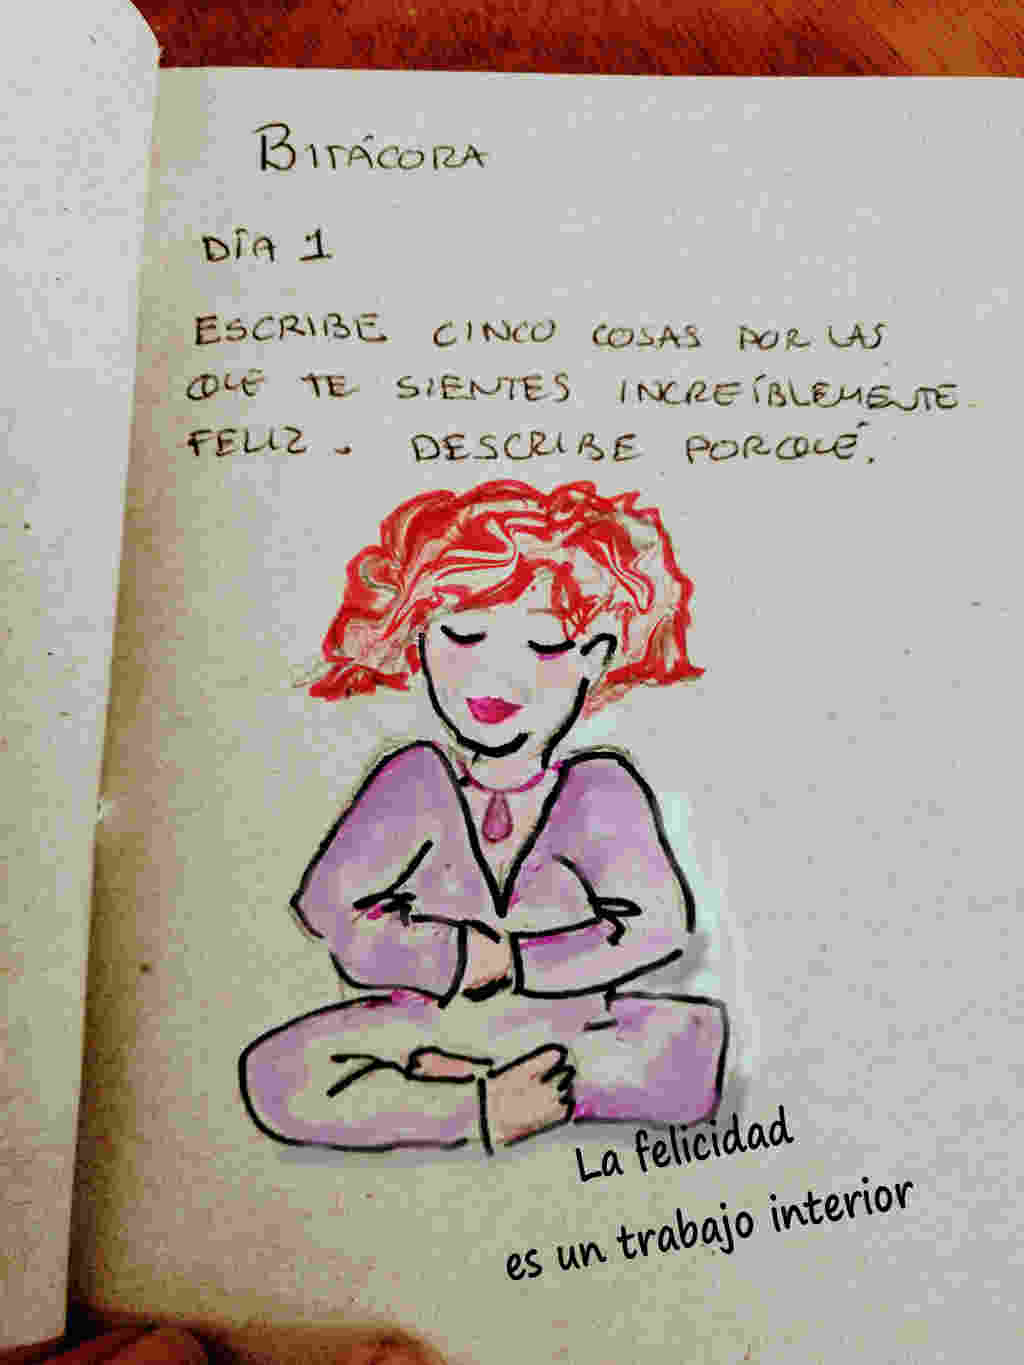 BITÁCORA
DÍA 1
ESCRIBE CINCO COSAS POR LAS
QUE TE SIENTES INCREÍBLEMENTE
FELIZ. DESCRIBE PORQUÉ.
La felicidad
es un trabajo interior